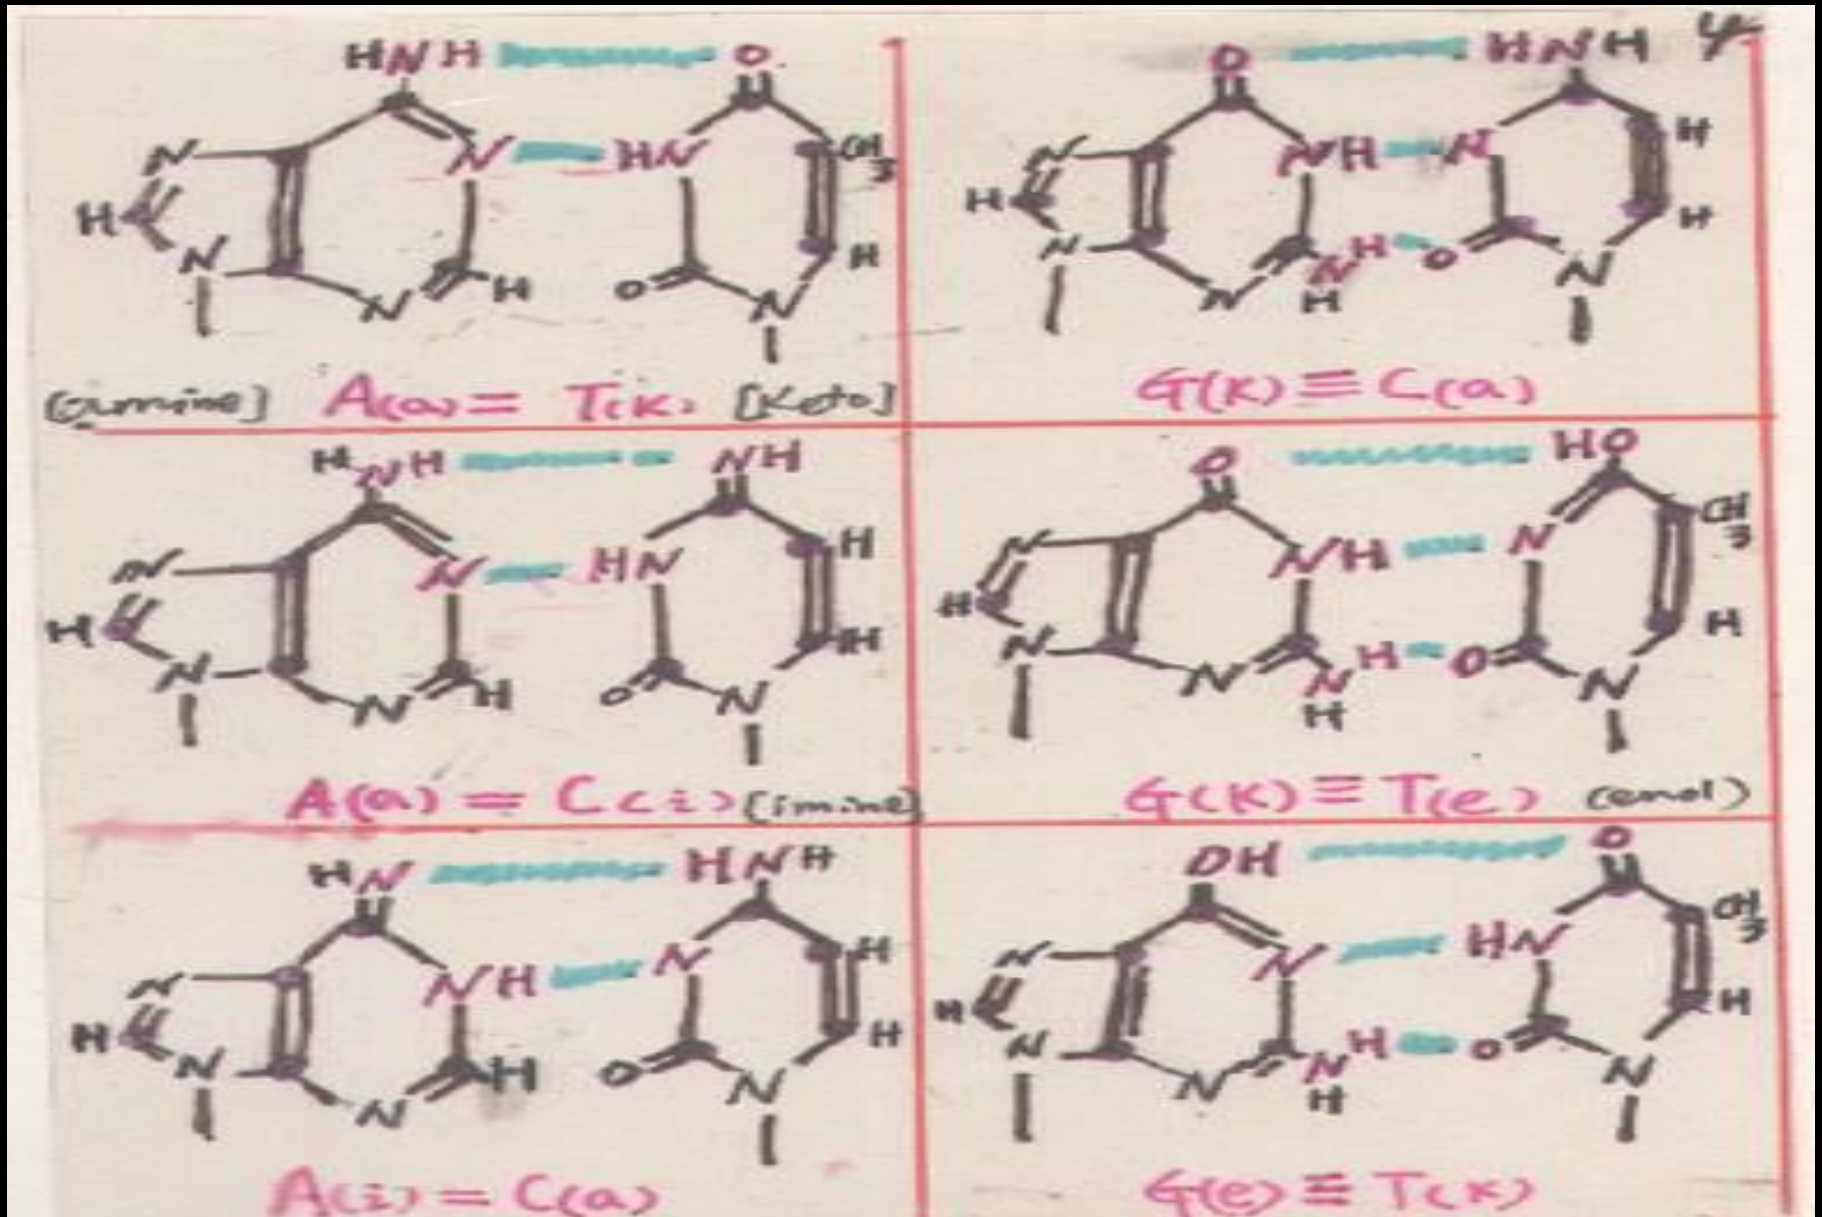 HNH O
N N HN CH3
H N H
N H O N
[amine] A(a) = T(K) [Keto]
O HNH 4
N NH N H
H H
N N H O N
N H
G(K) ≡ C(a)
HNH NH
N N HN H
H H
N N H O N
A(a) = C(i) [imine]
O HO
N NH N CH3
H H
N N N H O N
H
G(K) ≡ T(e) (enol)
HN HNH
N NH N H
H N H O H
N N
A(i) = C(a)
OH O
N N HN CH3
H H
N N N H O N
H
G(e) ≡ T(K)